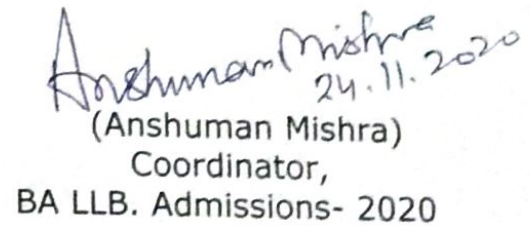 Anshuman Mishra
24.11.2020
(Anshuman Mishra)
Coordinator,
BA LLB. Admissions- 2020